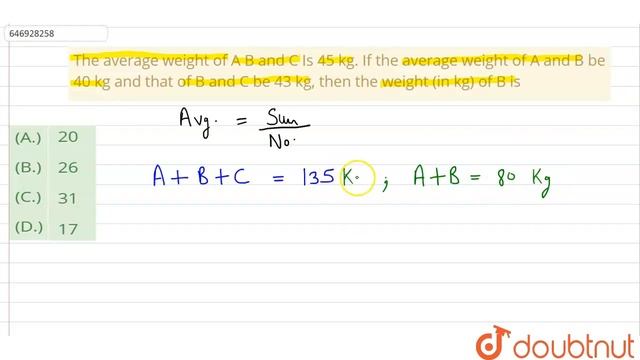 646928258
The average weight of A B and C Is 45 kg. If the average weight of A and B be
40 kg and that of B and C be 43 kg, then the weight (in kg) of B is
Avg. = Sum
No.
(A.) 20
(B.) 26
(C.) 31
(D.) 17
A + B + C = 135 K. ; A + B = 80 Kg
doubtnut